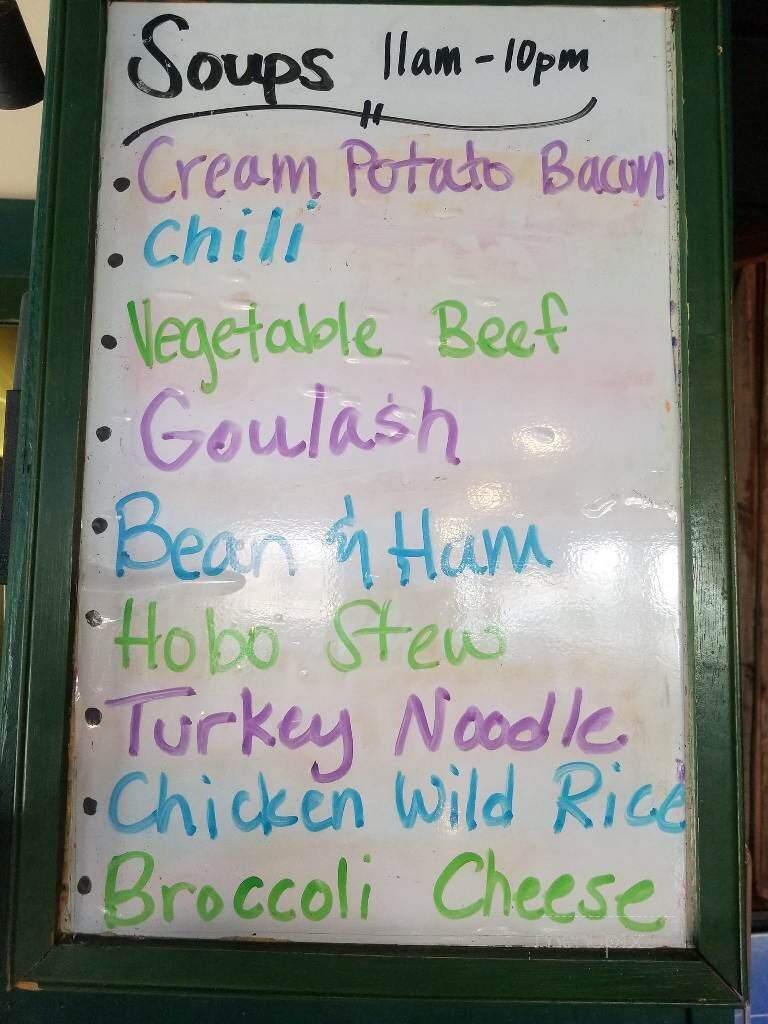 Soups 11am - 10pm
• Cream Potato Bacon
• Chili
• Vegetable Beef
• Goulash
• Bean & Ham
• Hobo Stew
• Turkey Noodle
• Chicken Wild Rice
• Broccoli Cheese